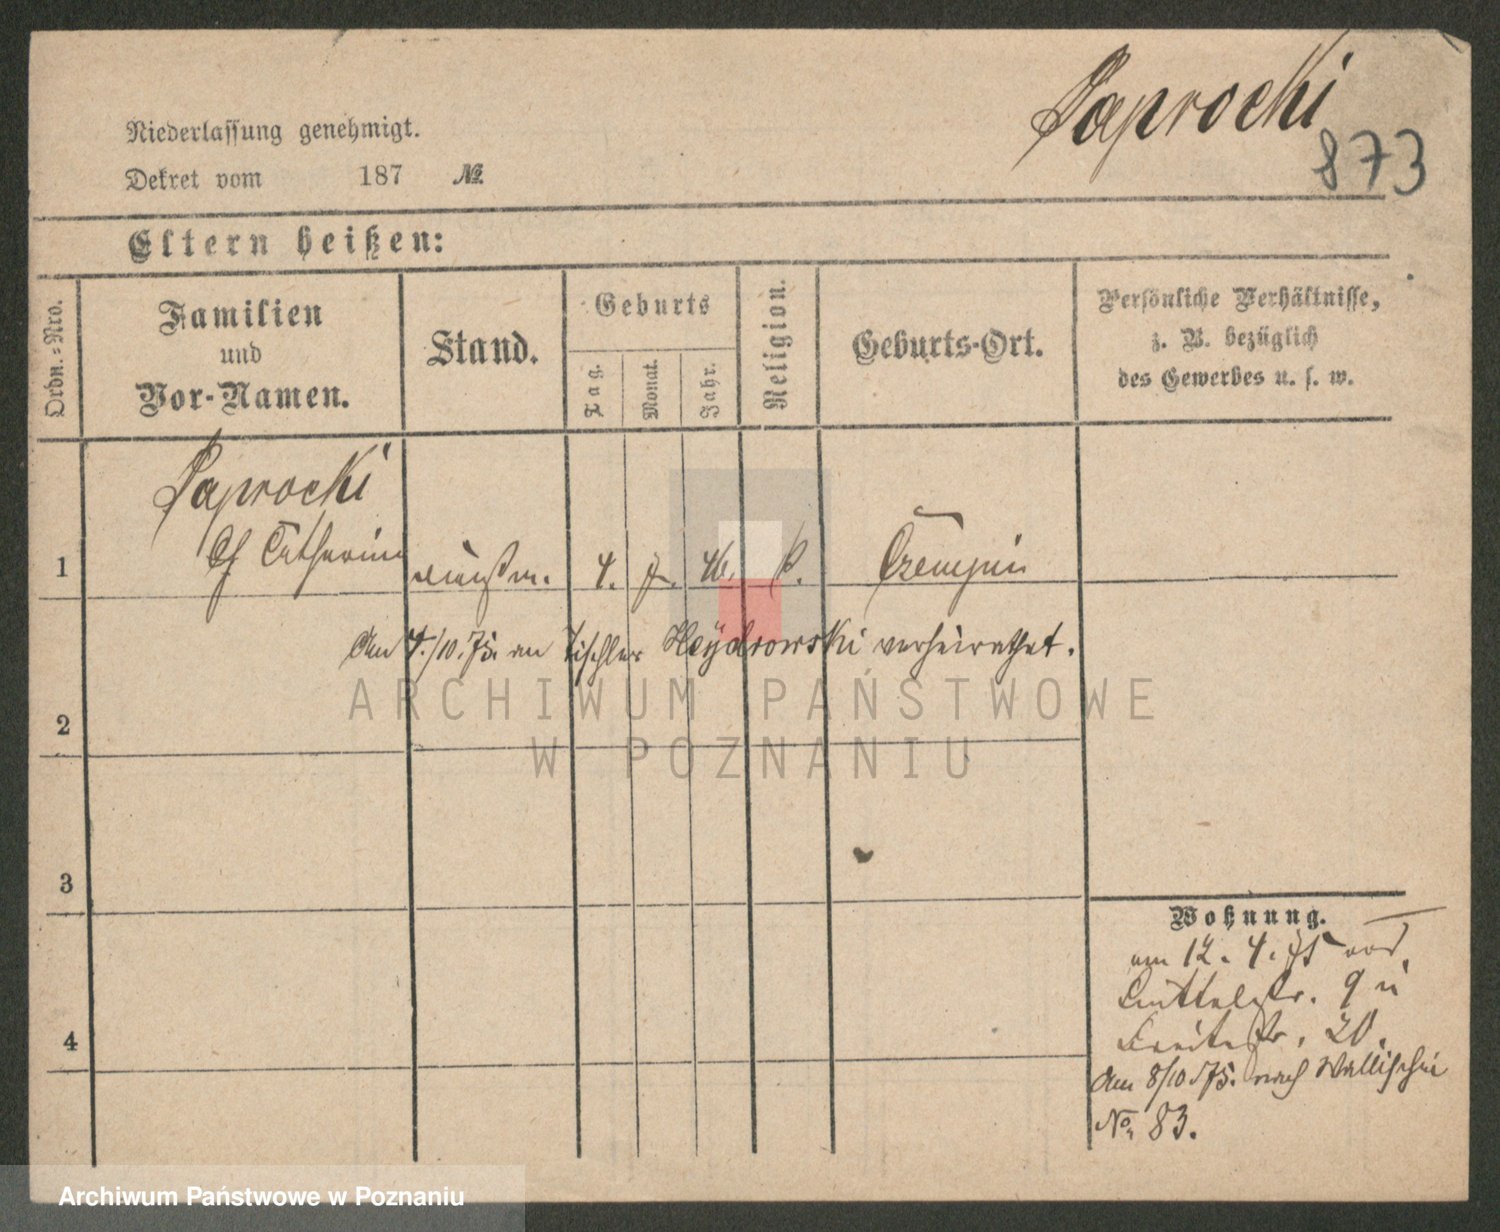 Paprocki
873
Niederlassung genehmigt.
Dekret vom 187 №
Eltern heißen:
Ordn.=Nro.
Familien
und
Vor-Namen.
Stand.
Geburts
Tag.
Monat.
Jahr.
Religion.
Geburts-Ort.
Persönliche Verhältnisse,
z. B. bezüglich
des Gewerbes u. s. w.
Paprocki
1 Catharina 4. 46. k. Czempin
Am 4./10.75. an Tischler Heydrowski verheirathet.
ARCHIWUM PAŃSTWOWE
W POZNANIU
2
3
4
Wohnung.
am 12. 4. 75 von
9 u
Breitestr. 20.
Am 8/10 75. nach Wallischei
No. 83.
Archiwum Państwowe w Poznaniu